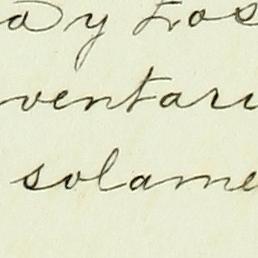 a y Los
ventari
solame